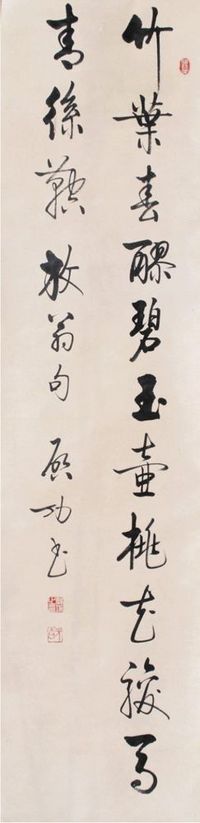 竹葉春醪碧玉壺桃花駿馬
青絲鞚 放翁句 启功书